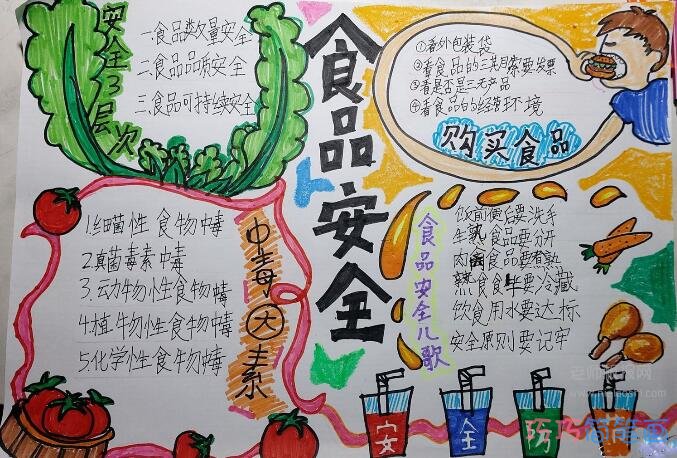 食品安全
安全3层次
一.食品数量安全
二.食品品质安全
三.食品可持续安全
①看外包装袋
②看食品的三期索要发票
③看是否是三无产品
④看食品的经营环境
购买食品
1.细菌性食物中毒
2.真菌毒素中毒
3.动物性食物中毒
4.植物性食物中毒
5.化学性食物中毒
中毒大素
食品安全儿歌
饭前便后要洗手
生熟食品要分开
肉禽食品要煮熟
熟食
要冷藏
饮食用水要达标
安全原则要记牢
安 全
巧巧简笔画
老师板报网